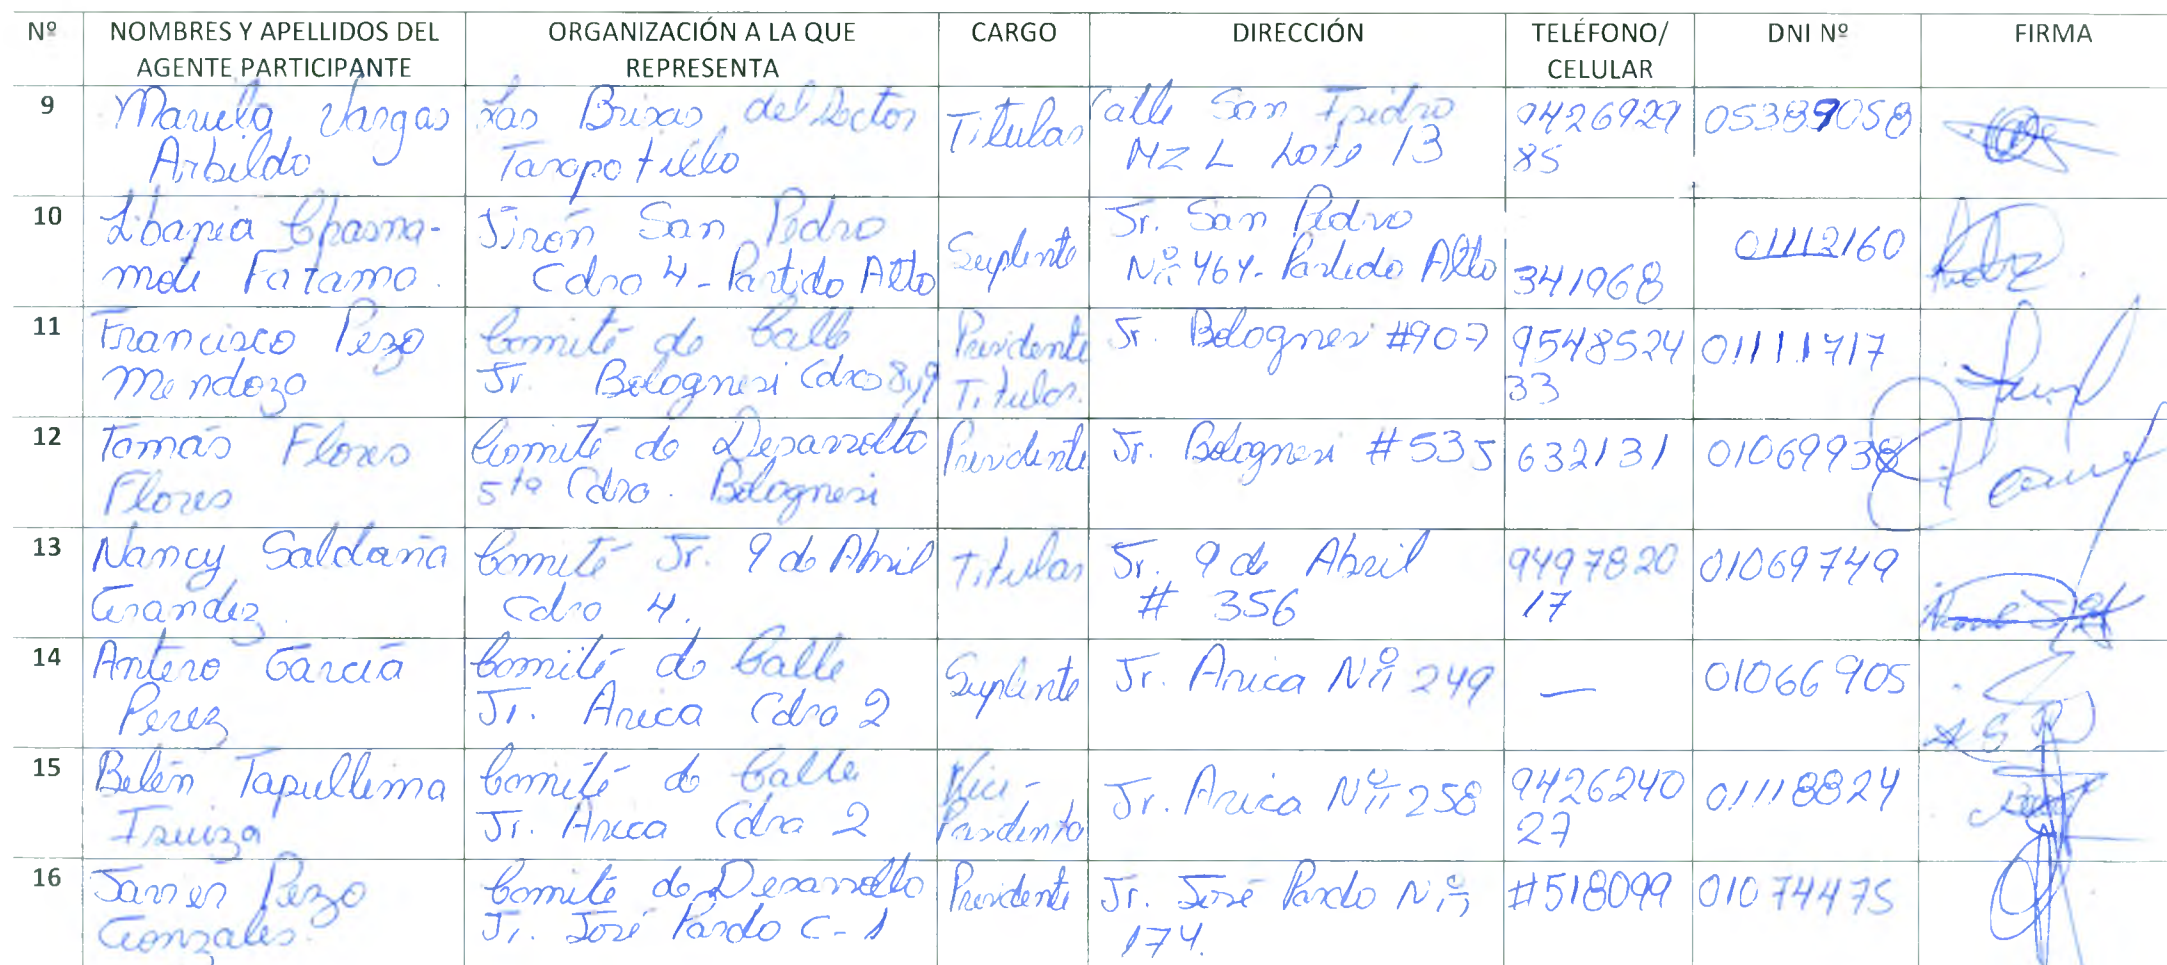 Nº NOMBRES Y APELLIDOS DEL AGENTE PARTICIPANTE ORGANIZACIÓN A LA QUE REPRESENTA CARGO DIRECCIÓN TELÉFONO/ CELULAR DNI Nº FIRMA
9 Manuela Vargas Arbildo Las Brisas del Sector Tarapotillo Titular Calle San Isidro MZ L Lote 13 942692985 05389058
10 Libania Chasnamote Fatama. Jirón San Pedro Cdra 4 - Partido Alto Suplente Jr. San Pedro Nº 464 - Partido Alto 341968 01112160
11 Francisco Pezo Mendoza Comité de Calle Jr. Bolognesi Cdras 8y9 Presidente Titular. Jr. Bolognesi #907 954852433 01111717
12 Tomás Flores Flores Comité de Desarrollo 5ta Cdra. Bolognesi Presidente Jr. Bolognesi #535 632131 01069938
13 Nancy Saldaña Grandez. Comité Jr. 9 de Abril Cdra 4. Titular Jr. 9 de Abril # 356 949782017 01069749
14 Antero García Perez Comité de Calle Jr. Arica Cdra 2 Suplente Jr. Arica Nº 249 — 01066905
15 Belén Tapullima Isuiza Comité de Calle Jr. Arica Cdra 2 Vice-Presidenta Jr. Arica Nº 258 942624027 01118824
16 Javier Pezo Gonzales. Comité de Desarrollo Jr. José Pardo C-1 Presidente Jr. José Pardo Nº 174. #518099 01074475